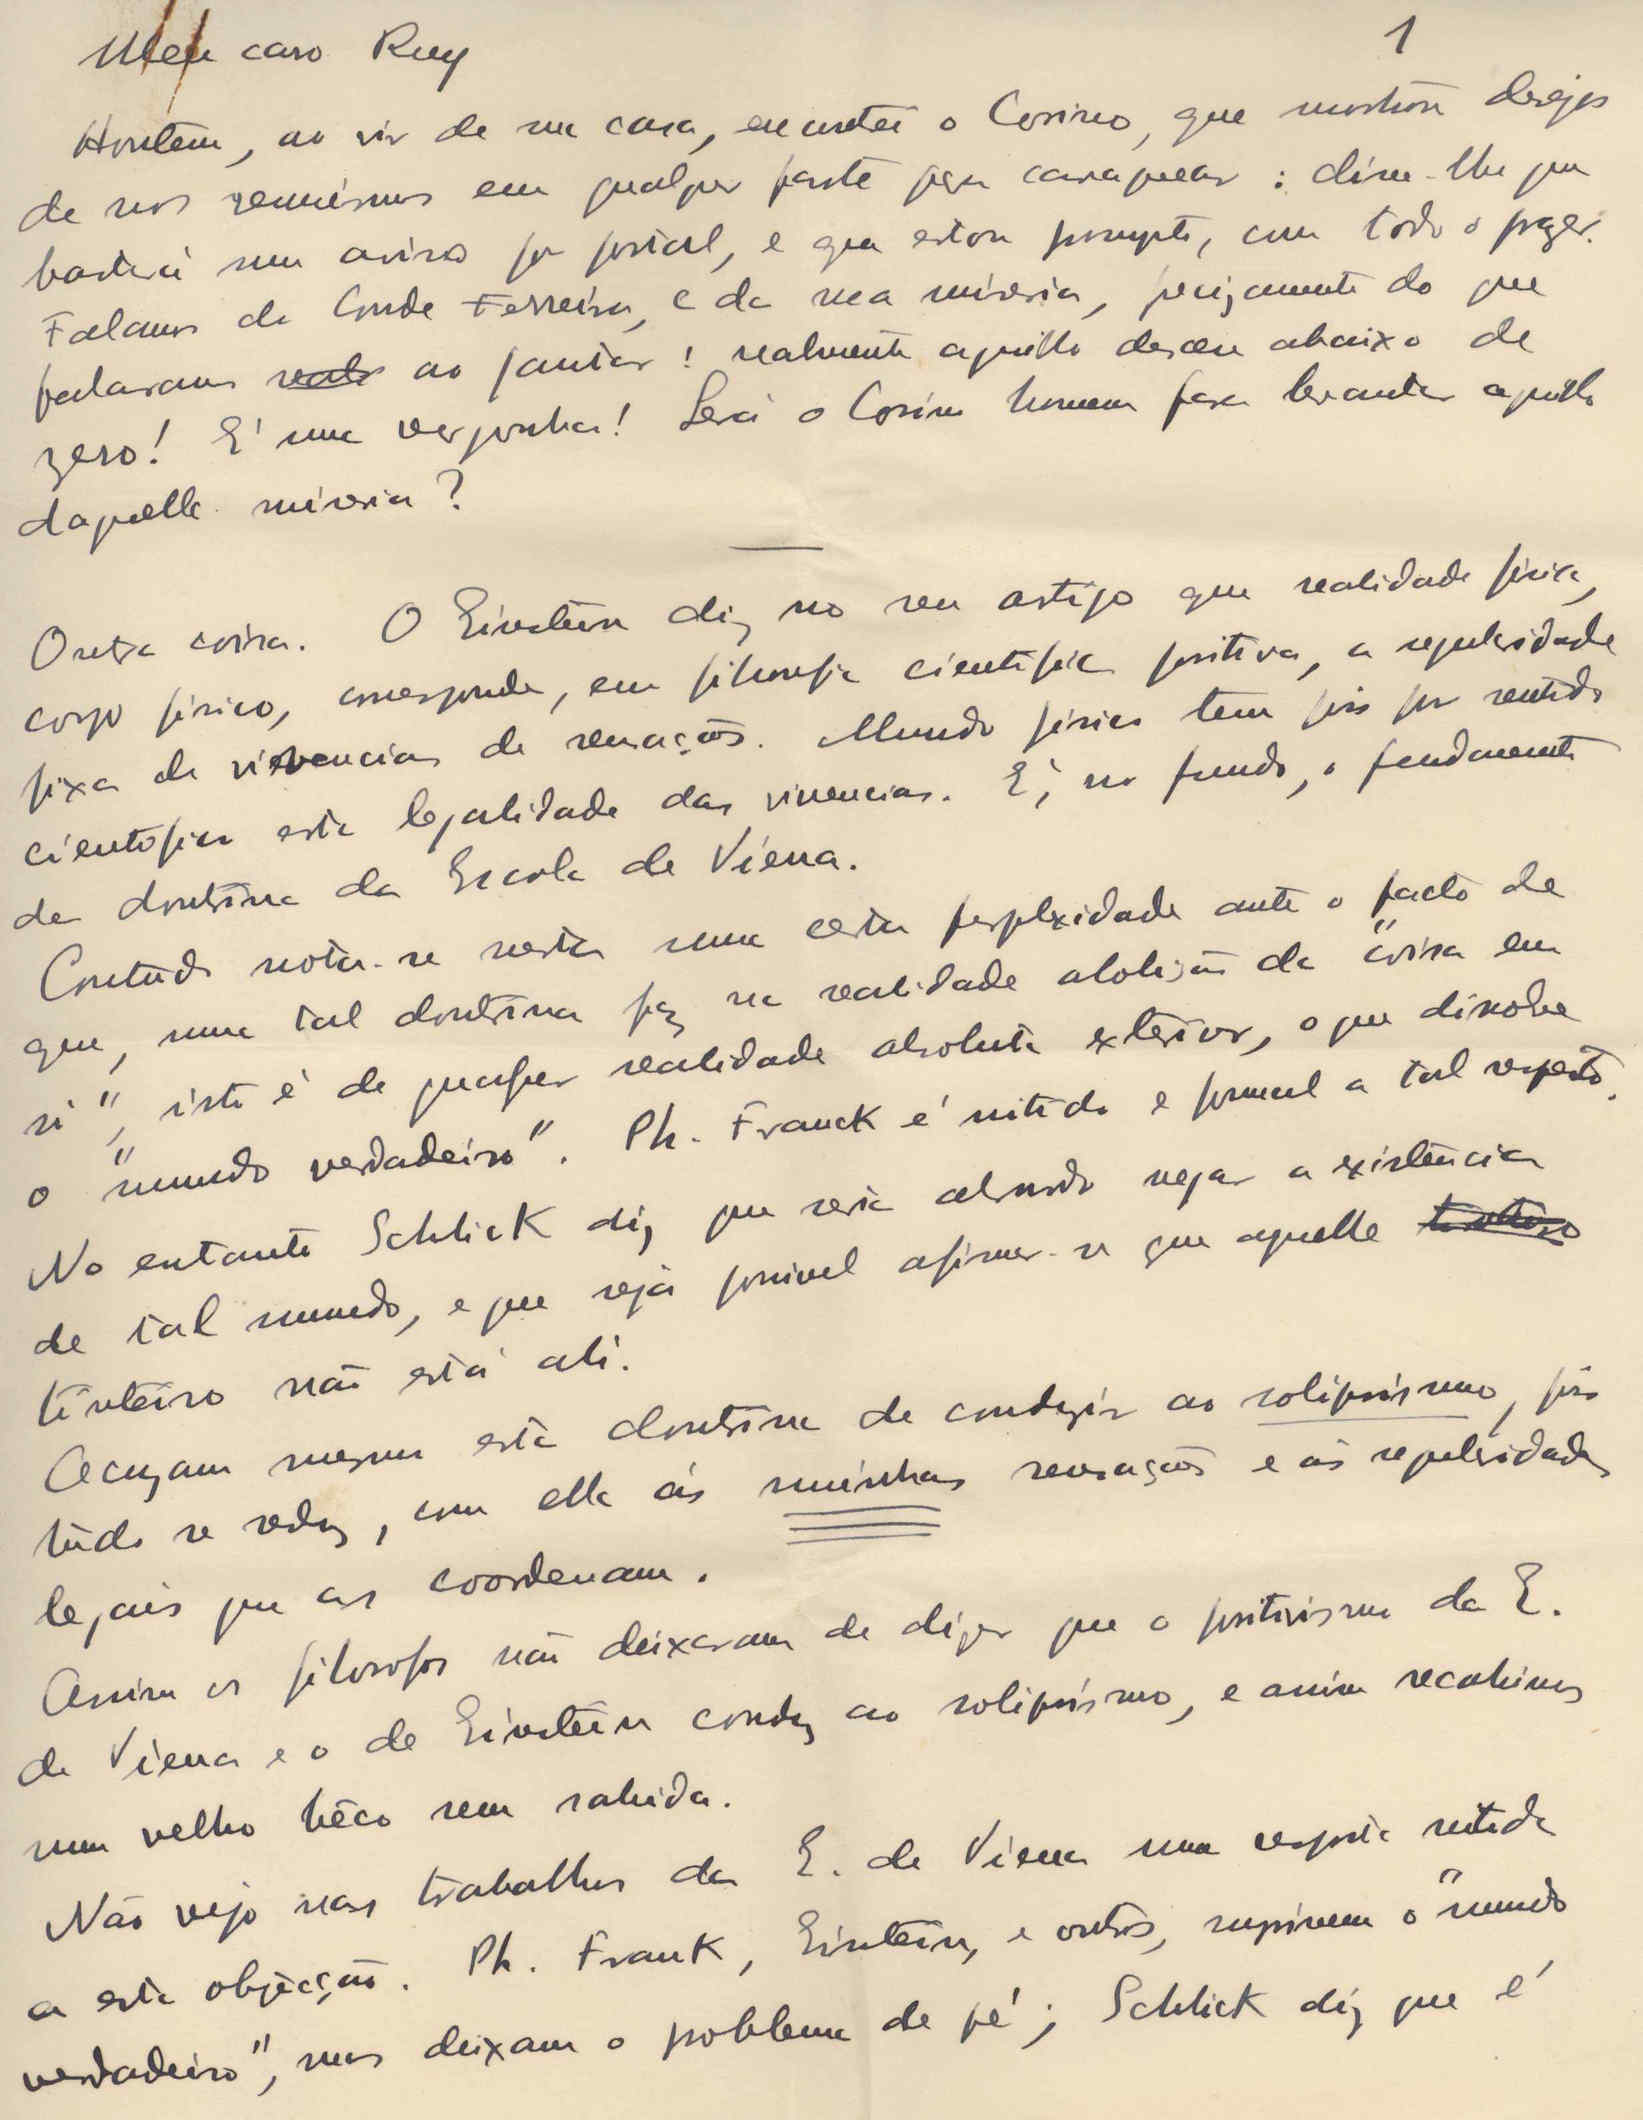 Meu caro Ruy
1
Hontem, ao vir de sua casa, encontrei o Corino, que mostrou desejos
de nos reunirmos em qualquer parte para cavaquear : disse-lhe que
bastará um aviso por postal, e que estou prompto, com todo o prazer.
Falamos do Conde Ferreira, e da sua miseria, precizamente do que
falaramos ao jantar ! realmente aquillo desceu abaixo de
zero! E' uma vergonha! Será o Corino homem para levantar aquillo
daquella miseria ?
Outra coisa. O Einstein diz no seu artigo que realidade fisica,
corpo fisico, corresponde, em filosofia cientifica positiva, a regularidade
fixa de vivencias de sensações. Mundo fisico tem pois por sentido
cientifico esta legalidade das vivencias. E', no fundo, o fundamento
da doutrina da Escola de Viena.
Contudo nota-se nesta uma certa perplexidade ante o facto de
que, uma tal doutrina faz na realidade abolição da "coisa em
si", isto é de qualquer realidade absoluta exterior, o que dissolve
o "mundo verdadeiro". Ph. Franck é nitido e formal a tal respeito.
No entanto Schlick diz que seria absurdo negar a existência
de tal mundo, e que seja possivel afirmar-se que aquelle
tinteiro não está ali.
Acuzam mesmo esta doutrina de conduzir ao solipsismo, pois
tudo se reduz, com ella ás minhas sensações e ás regularidades
legais que as coordenam.
Assim os filosofos não deixaram de dizer que o positivismo da E.
de Viena e o de Einstein conduz ao solipsismo, e assim recahimos
num velho bêco sem sahida.
Não vejo nos trabalhos da E. de Viena uma resposta nitida
a esta objecção. Ph. Frank, Einstein, e outros, suprimem o "mundo
verdadeiro", mas deixam o problema de pé ; Schlick diz que é